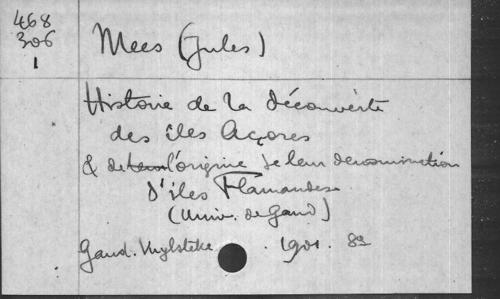 468
306
1
Mees (Jules)
Histoire de la découverte
des îles Açores
& de l'origine de leur denomination
d'îles Flamandes
(Univ. de Gand)
Gand. Vuylsteke . 1901. 8º